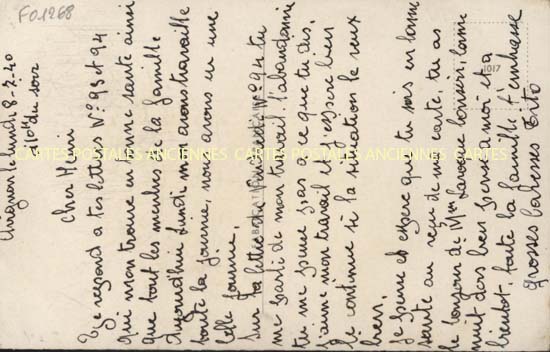 F01268
Avignon le lundi 8-7-40
a 10H du soir
Cher Mimi
Je repond a tes lettres N° 93 et 94
qui mon trouvé en bonne santé ainsi
que tout les membres de la famille
Aujourd'hui lundi nous avons travaillé
toute la journée, nous avons eu une
belle journée.
Sur ta lettre de N° 94 tu
me parle de mon travail l'abandonné
tu me pense pas a ce que tu dis,
j'aime mon travail et j'espere bien
le continué si la situation le veux
bien.
Je pense et espere que tu sois en bonne
santé au reçu de ma carte, tu as
le bonjour de Mme Lavoie Loulou,
nuit dors bien pense a moi et a
bientot, toute la famille t'embrasse
grosses caresses Toto
1017
CARTES POSTALES ANCIENNES CARTES POSTALES ANCIENNES CARTES